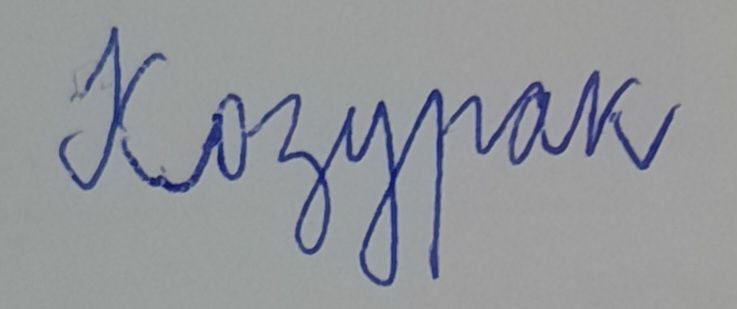 Козурак